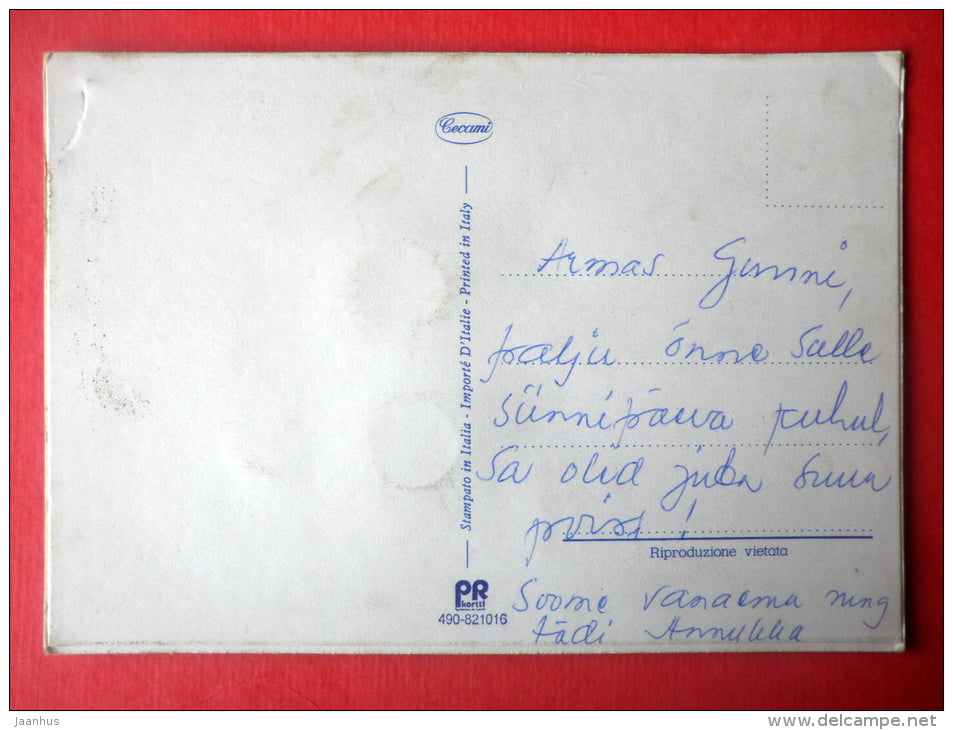 Cecami
Stampato in Italia - Importé D'Italie - Printed in Italy
Armas Gunni,
palju õnne Sulle
sünnipäeva puhul,
Sa olid juba suur
poiss!
Riproduzione vietata
PR
kortti
490-821016
Soome vanaema ning
tädi Annukka
Jaanhus
delcampe.net